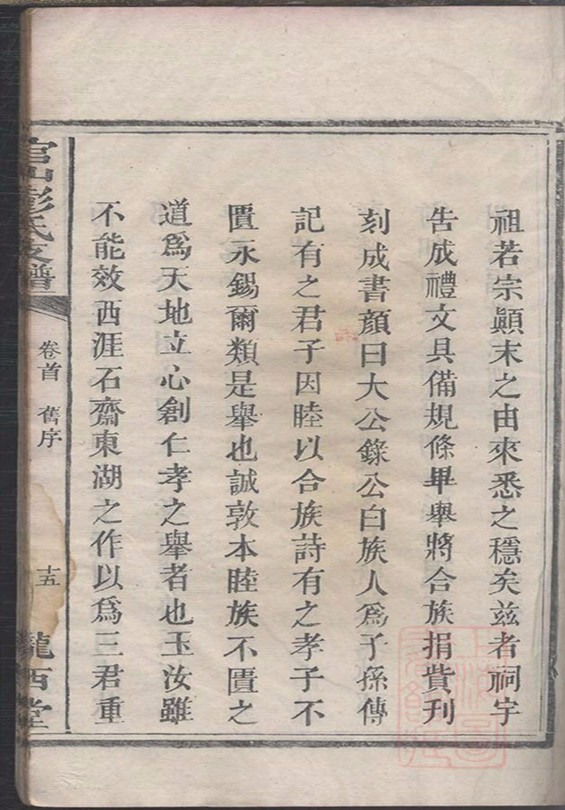 祖若宗顚末之由來悉之穩矣茲者祠宇
告成禮文具備規條畢舉將合族捐貲刊
刻成書顏曰大公錄公白族人爲子孫傳
記有之君子因睦以合族詩有之孝子不
匱永錫爾類是舉也誠敦本睦族不匱之
道爲天地立心創仁孝之舉者也玉汝雖
不能效西涯石齋東湖之作以爲三君重
官山彭氏支譜
卷首 舊序
十五
隴西堂